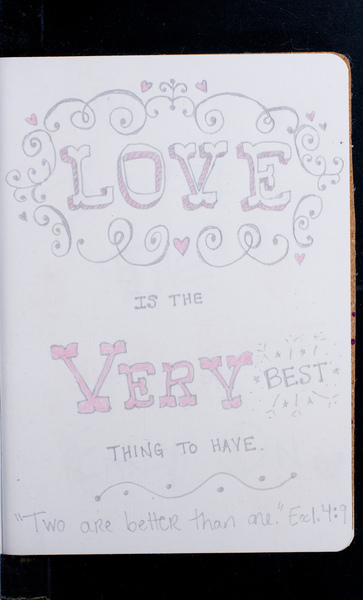 LOVE
IS THE
VERY BEST
THING TO HAVE.
"Two are better than one." Ecl. 4:9